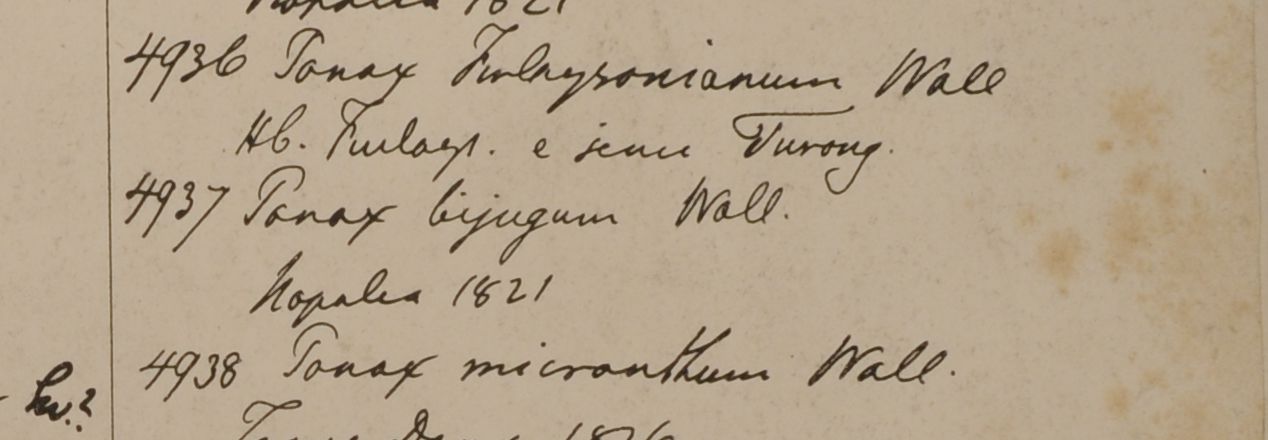 Napalia 1821
4936 Panax Finlaysonianum Wall
Hb. Finlays. e sinu Turong.
4937 Panax bijugum Wall.
Napalia 1821
4938 Panax micranthum Wall.